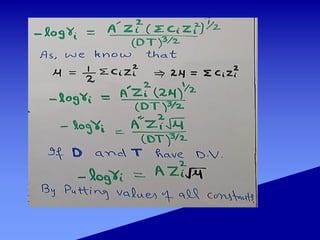 -logγi = A′Zi²(ΣCiZi²)^1/2 / (DT)^3/2
As, we know that
μ = 1/2 ΣCiZi² ⇒ 2μ = ΣCiZi²
-logγi = A′Zi²(2μ)^1/2 / (DT)^3/2
-logγi = A″Zi²√μ / (DT)^3/2
If D and T have D.V.
-logγi = AZi²√μ
By Putting values of all constants